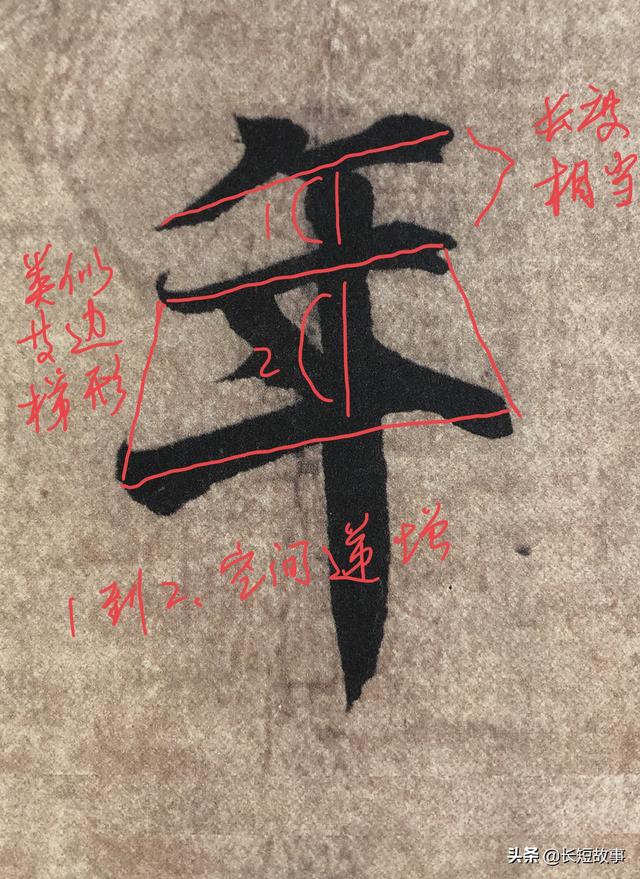 年
长度
相当
类似
等边
梯形
1
2
1到2、空间递增
头条 @长短故事